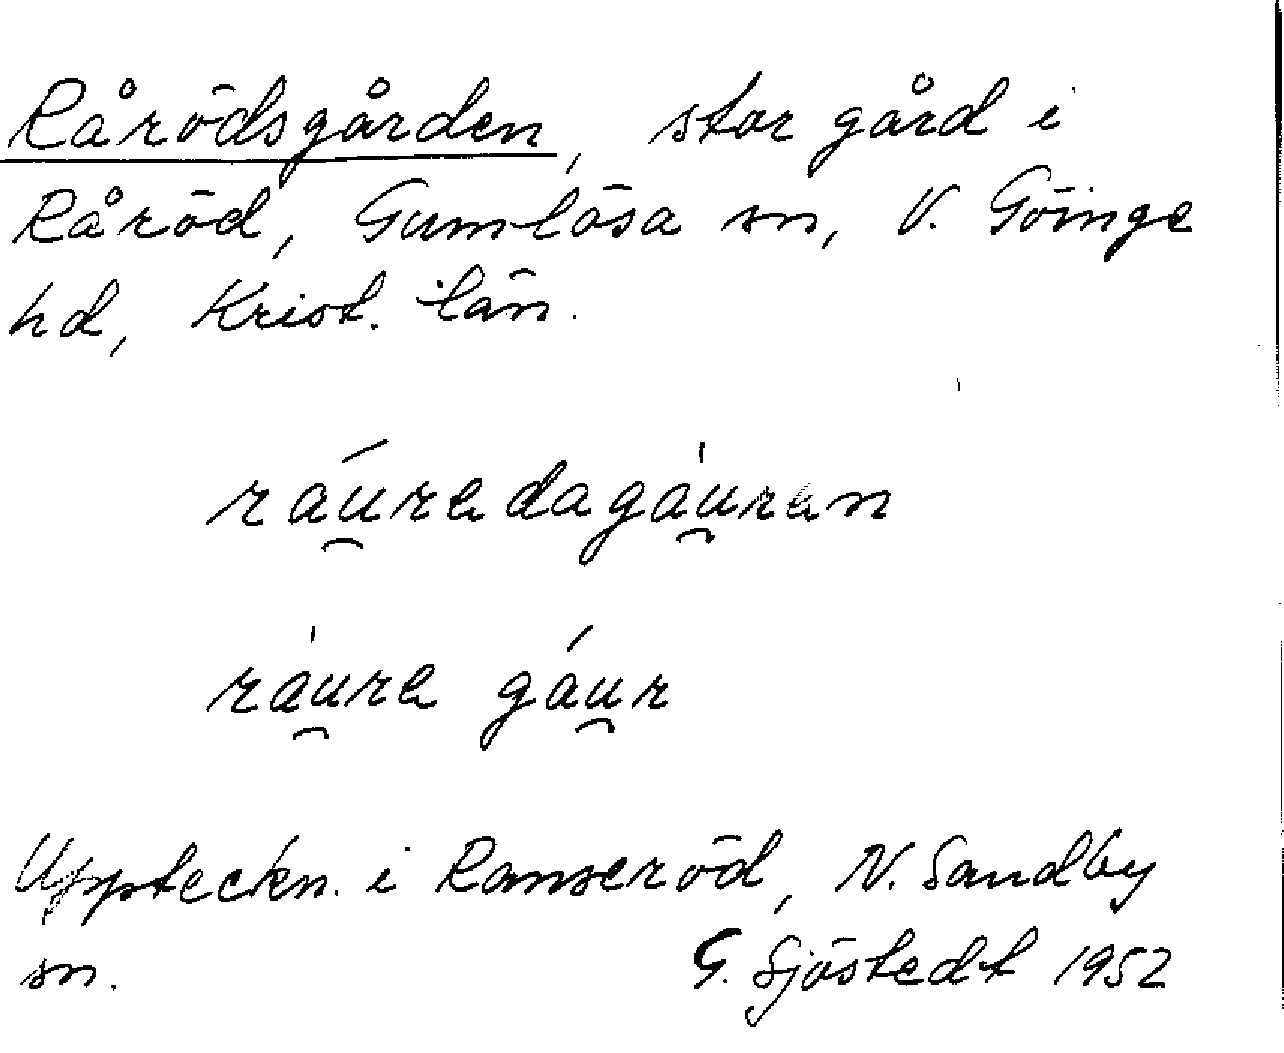 Rårödsgården, stor gård i
Råröd, Gumlösa sn, V. Göinge
hd, Krist. län.
ráu̯redagàu̯ren
ràu̯re gáu̯r
Uppteckn. i Ranseröd, N. Sandby
sn. G. Sjöstedt 1952